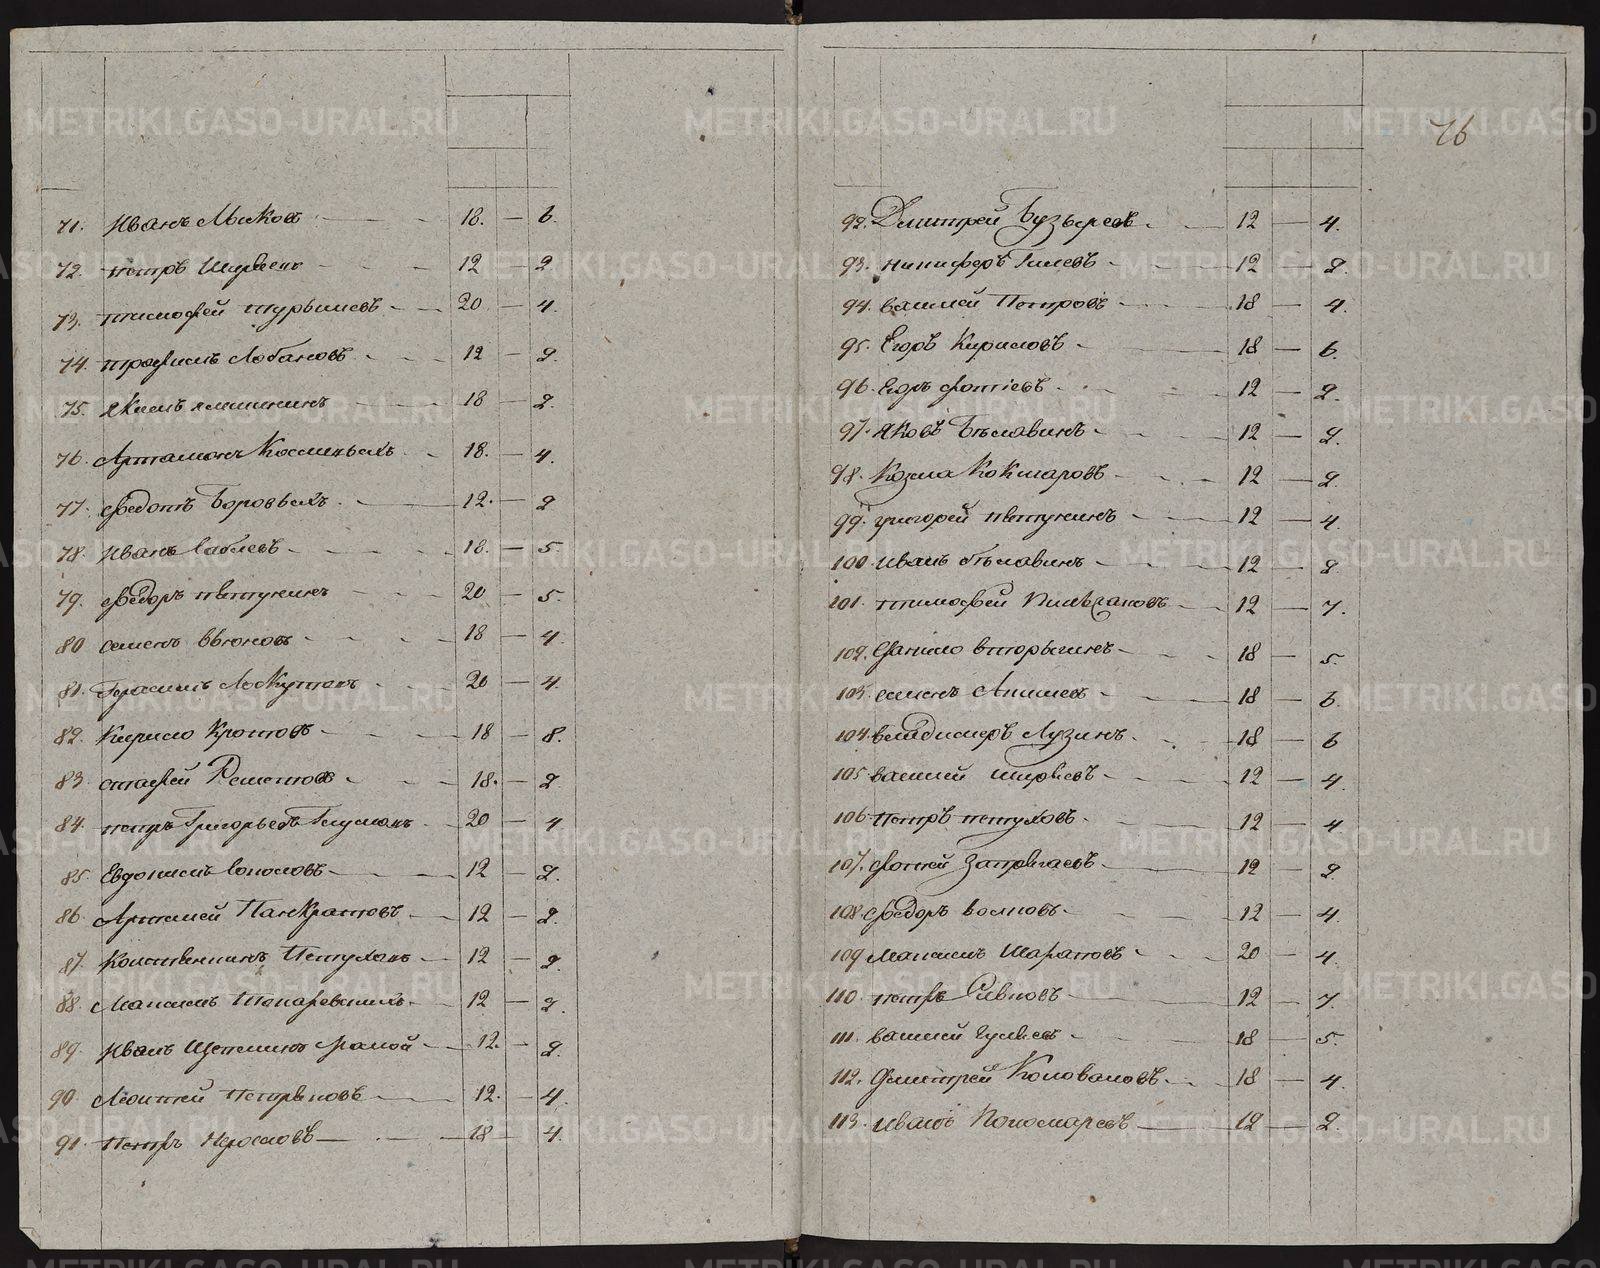 76
71. Иванъ Мыковъ 18. 6.
72. петръ 12 2.
73. тимофей турышевъ 20 4.
74. трофимъ Лобановъ 12 2.
75. якимъ 18 2.
76. Артамонъ Косминыхъ 18. 4.
77. федотъ Боровыхъ 12. 2
78. Иванъ 18. 5.
79. федоръ петунинъ 20 5.
80 семенъ Вьюновъ 18 4.
81. Герасимъ Лоскутовъ 20 4.
82. Кирило Кротовъ 18 8.
83. 18. 2.
84. петръ Григорьевъ 20 4
85. Евдокимъ 12 2.
86. Артемей Панкратовъ 12 2.
87. Констентинъ Петуховъ 12 2.
88. Максимъ 12 2.
89. Иванъ Щепелинъ 12. 2.
90. Леонтей 12. 4.
91. Петръ 18 4.
92. Дмитрей Бузыревъ 12 4.
93. никифоръ Гилевъ 12 2.
94. василей Петровъ 18 4.
95. Егоръ Кириловъ 18 6.
96. Егоръ фотіевъ 12 2.
97. яковъ Беславинъ 12 2.
98. Козма Кокшаровъ 12 2.
99. григорей петунинъ 12 4.
100. иванъ беславинъ 12 2.
101. тимофей 12 7.
102. Данило вторыгинъ 18 5.
103. семенъ 18 6.
104. владимеръ Лузинъ 18 6
105 василей ширяевъ 12 4.
106 петръ петуховъ 12 4
107. фотей 12 2.
108. федоръ волковъ 12 4.
109 Максимъ Шараповъ 20 4.
110. петръ Сивковъ 12 7.
111. василей гуляевъ 18 5.
112. Дмитрей Коноваловъ 18 4.
113. иванъ Пономаревъ 12 2.
METRIKI.GASO-URAL.RU